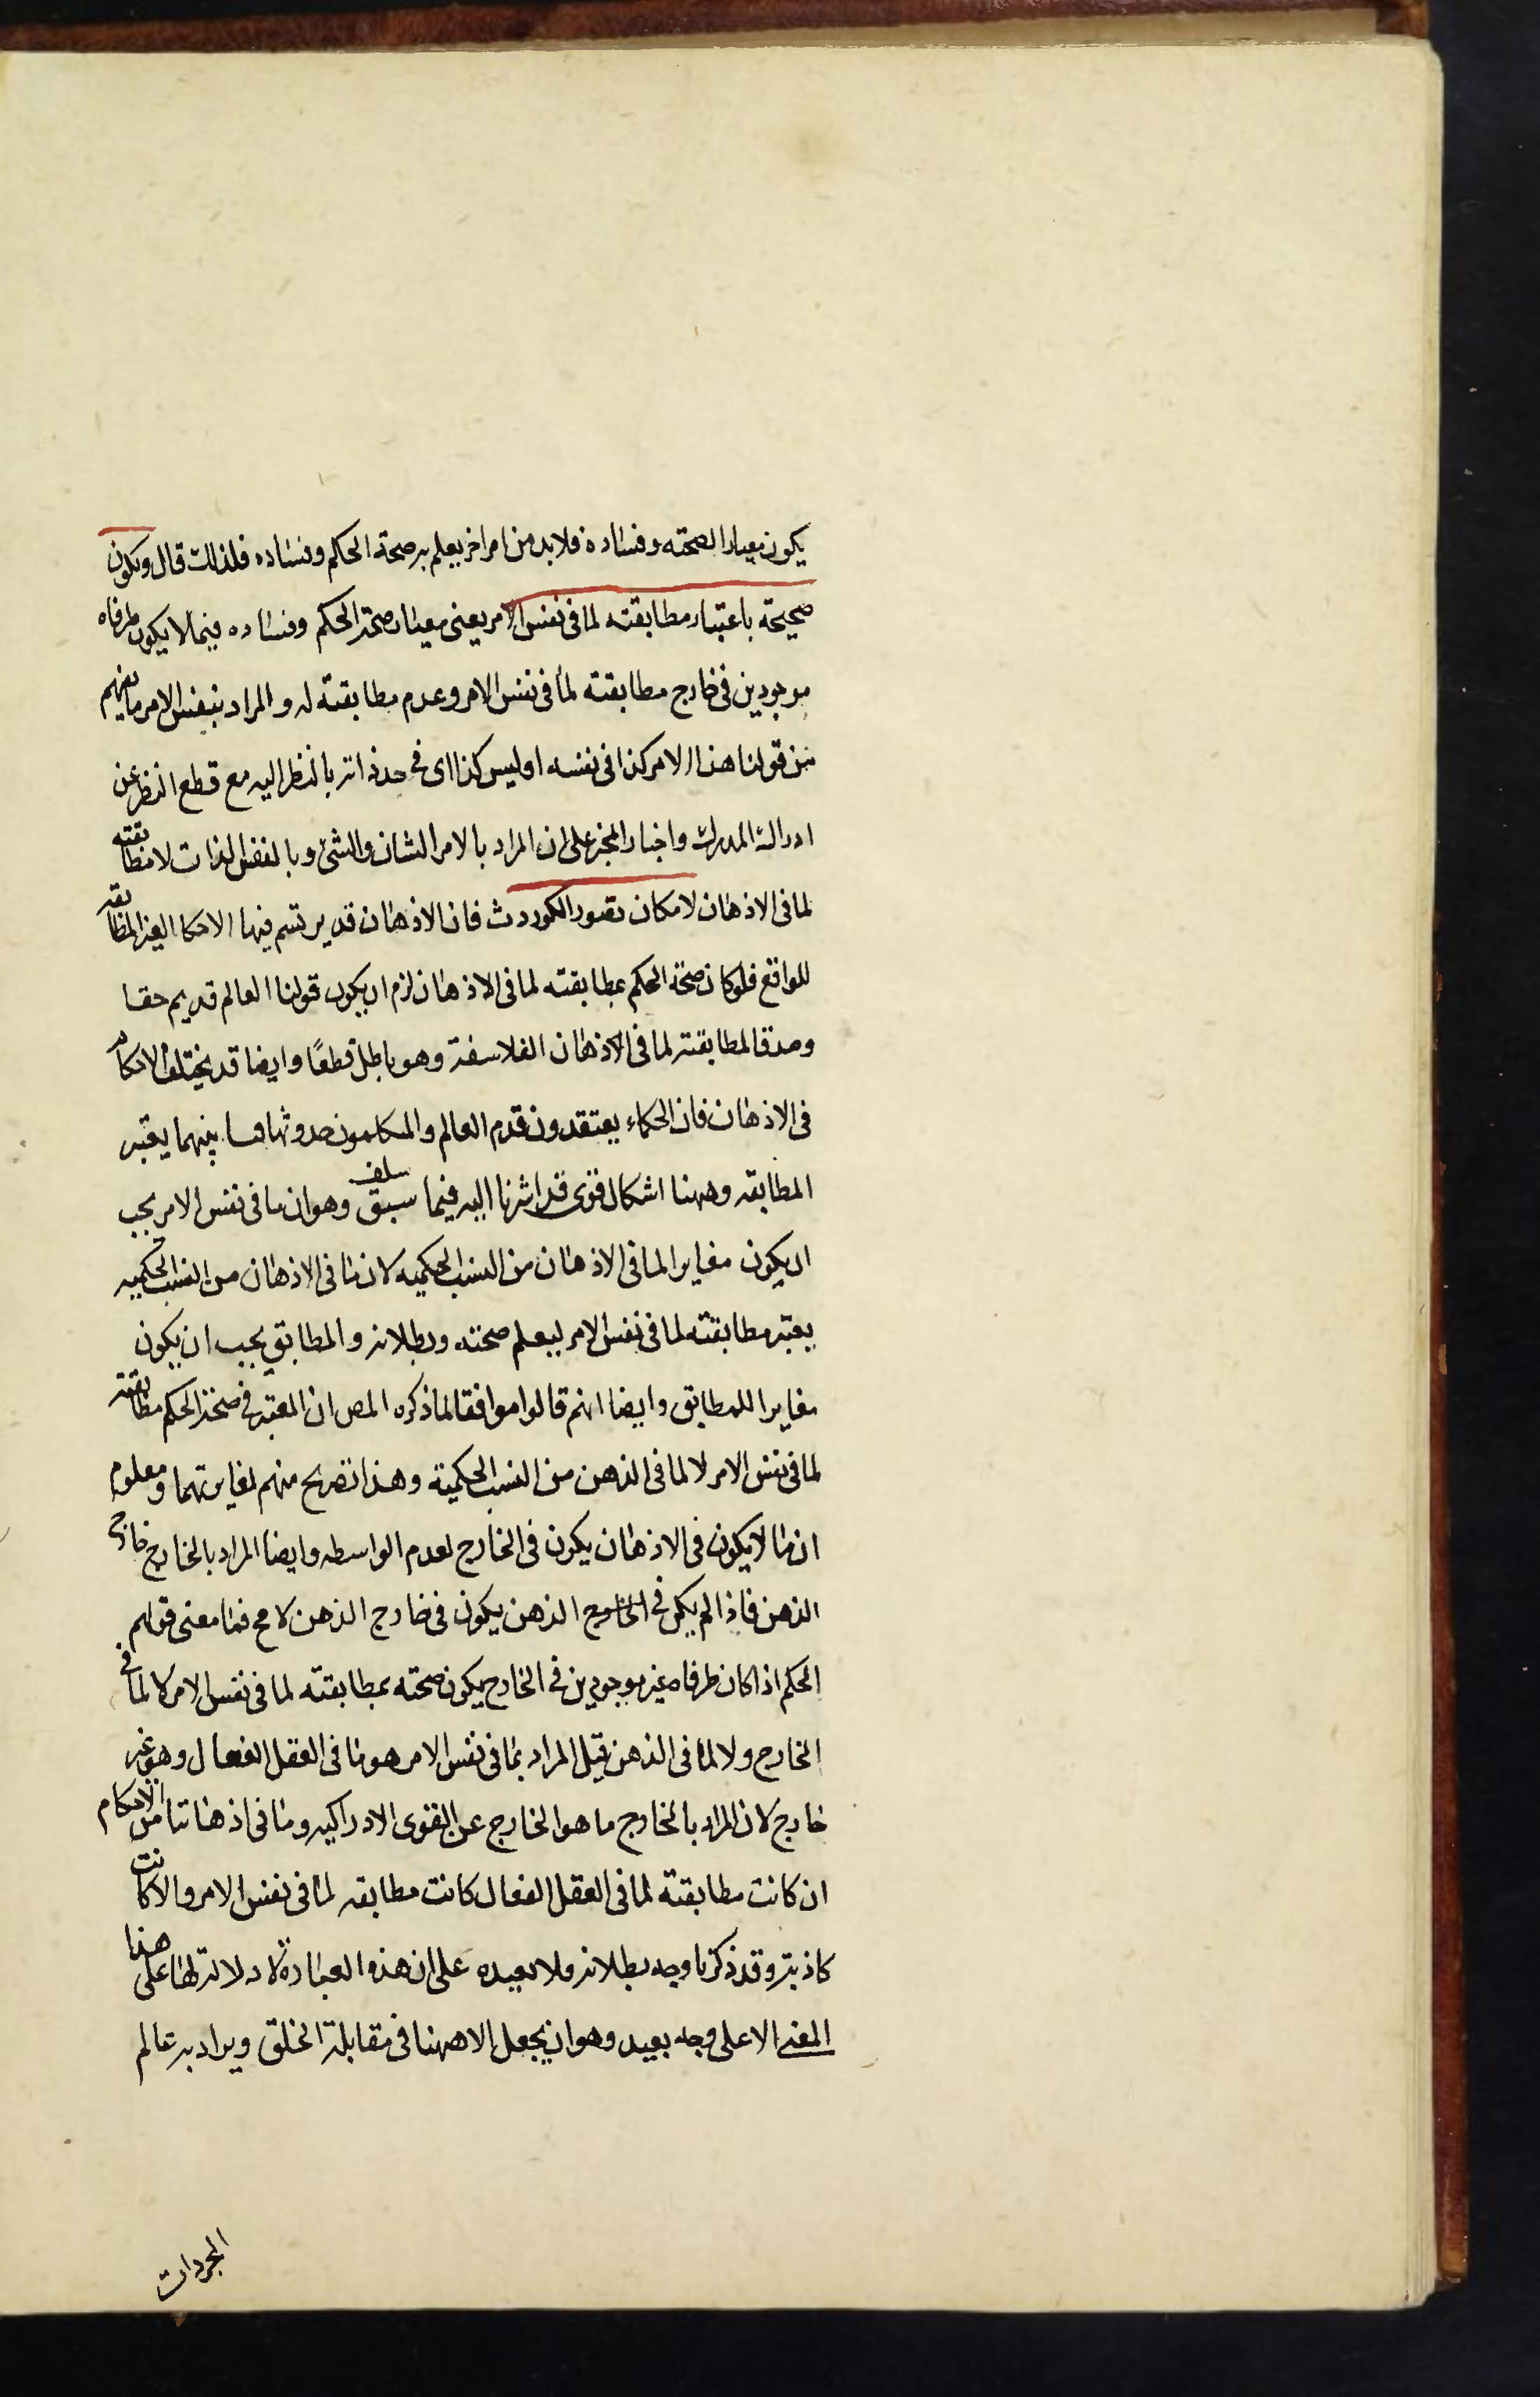 يكون معيارا لصحته وفساده فلابد من امر اخر يعلم به صحة الحكم وفساده فلذلك قال ويكون
صحيحة باعتبار مطابقته لما فى نفس الامر يعنى معيار صحة الحكم وفساده فيما لا يكون طرفاه
موجودين فى خارج مطابقته لما فى نفس الامر وعدم مطابقته له والمراد بنفس الامر ما يفهم
من قولنا هذا الامر كذا فى نفسه او ليس كذا اى فى حد ذاته بالنظر اليه مع قطع النظر عن
ادراك المدرك واخبار المخبر على ان المراد بالامر الشان والشئ وبالنفس الذات لا مطابقته
لما فى الاذهان لامكان تصور الكورد ث فان الاذهان قد يرتسم فيها الاحكا الغير المطابقه
للواقع فلو كان صحة الحكم بمطابقته لما فى الاذهان لزم ان يكون قولنا العالم قديم حقا
وصدقا لمطابقته لما فى الاذهان الفلاسفة وهو باطل قطعًا وايضا قد يختلف الاحكام
فى الاذهان فان الحكماء يعتقدون قدم العالم والمتكلمون حدوثها فما بينهما يعتبر
المطابقه وههنا اشكال قوى قد اشرنا اليه فيما سبق سلف وهو ان ما فى نفس الامر يجب
ان يكون مغايرا لما فى الاذهان من النسب الحكميه لان ما فى الاذهان من النسب الحكميه
يعتبر مطابقته لما فى نفس الامر ليعلم صحته وبطلانه والمطابق يجب ان يكون
مغايرا للمطابق وايضا انهم قالوا موافقا لما ذكره المص ان المعتبر فى صحة الحكم مطابقته
لما فى نفس الامر لا لما فى الذهن من النسب الحكمية وهذا تصريح منهم لمغايرتهما ومعلوم
ان ما لا يكون فى الاذهان يكون فى الخارج لعدم الواسطه وايضا المراد بالخارج خارج
الذهن فاذا لم يكن فى الخارج الذهن يكون فى خارج الذهن لا مح فما معنى قولهم
الحكم اذا كان طرفاه غير موجودين فى الخارج يكون صحته بمطابقته لما فى نفس الامر لا لما فى
الخارج ولا لما فى الذهن قيل المراد بما فى نفس الامر هو ما فى العقل الفعال وهو غير
خارج لان المراد بالخارج ما هو الخارج عن القوى الادراكيه وما فى اذهاننا من الاحكام
ان كانت مطابقتة لما فى العقل الفعال كانت مطابقه لما فى نفس الامر والا كانت
كاذبة وقد ذكرنا وجه بطلانه ولا نعيده على ان هذه العبارة لا دلالة لها على هذا
المعنى الا على وجه بعيد وهو ان يجعل الا ههنا فى مقابلة الخلق ويراد به عالم
المجردات